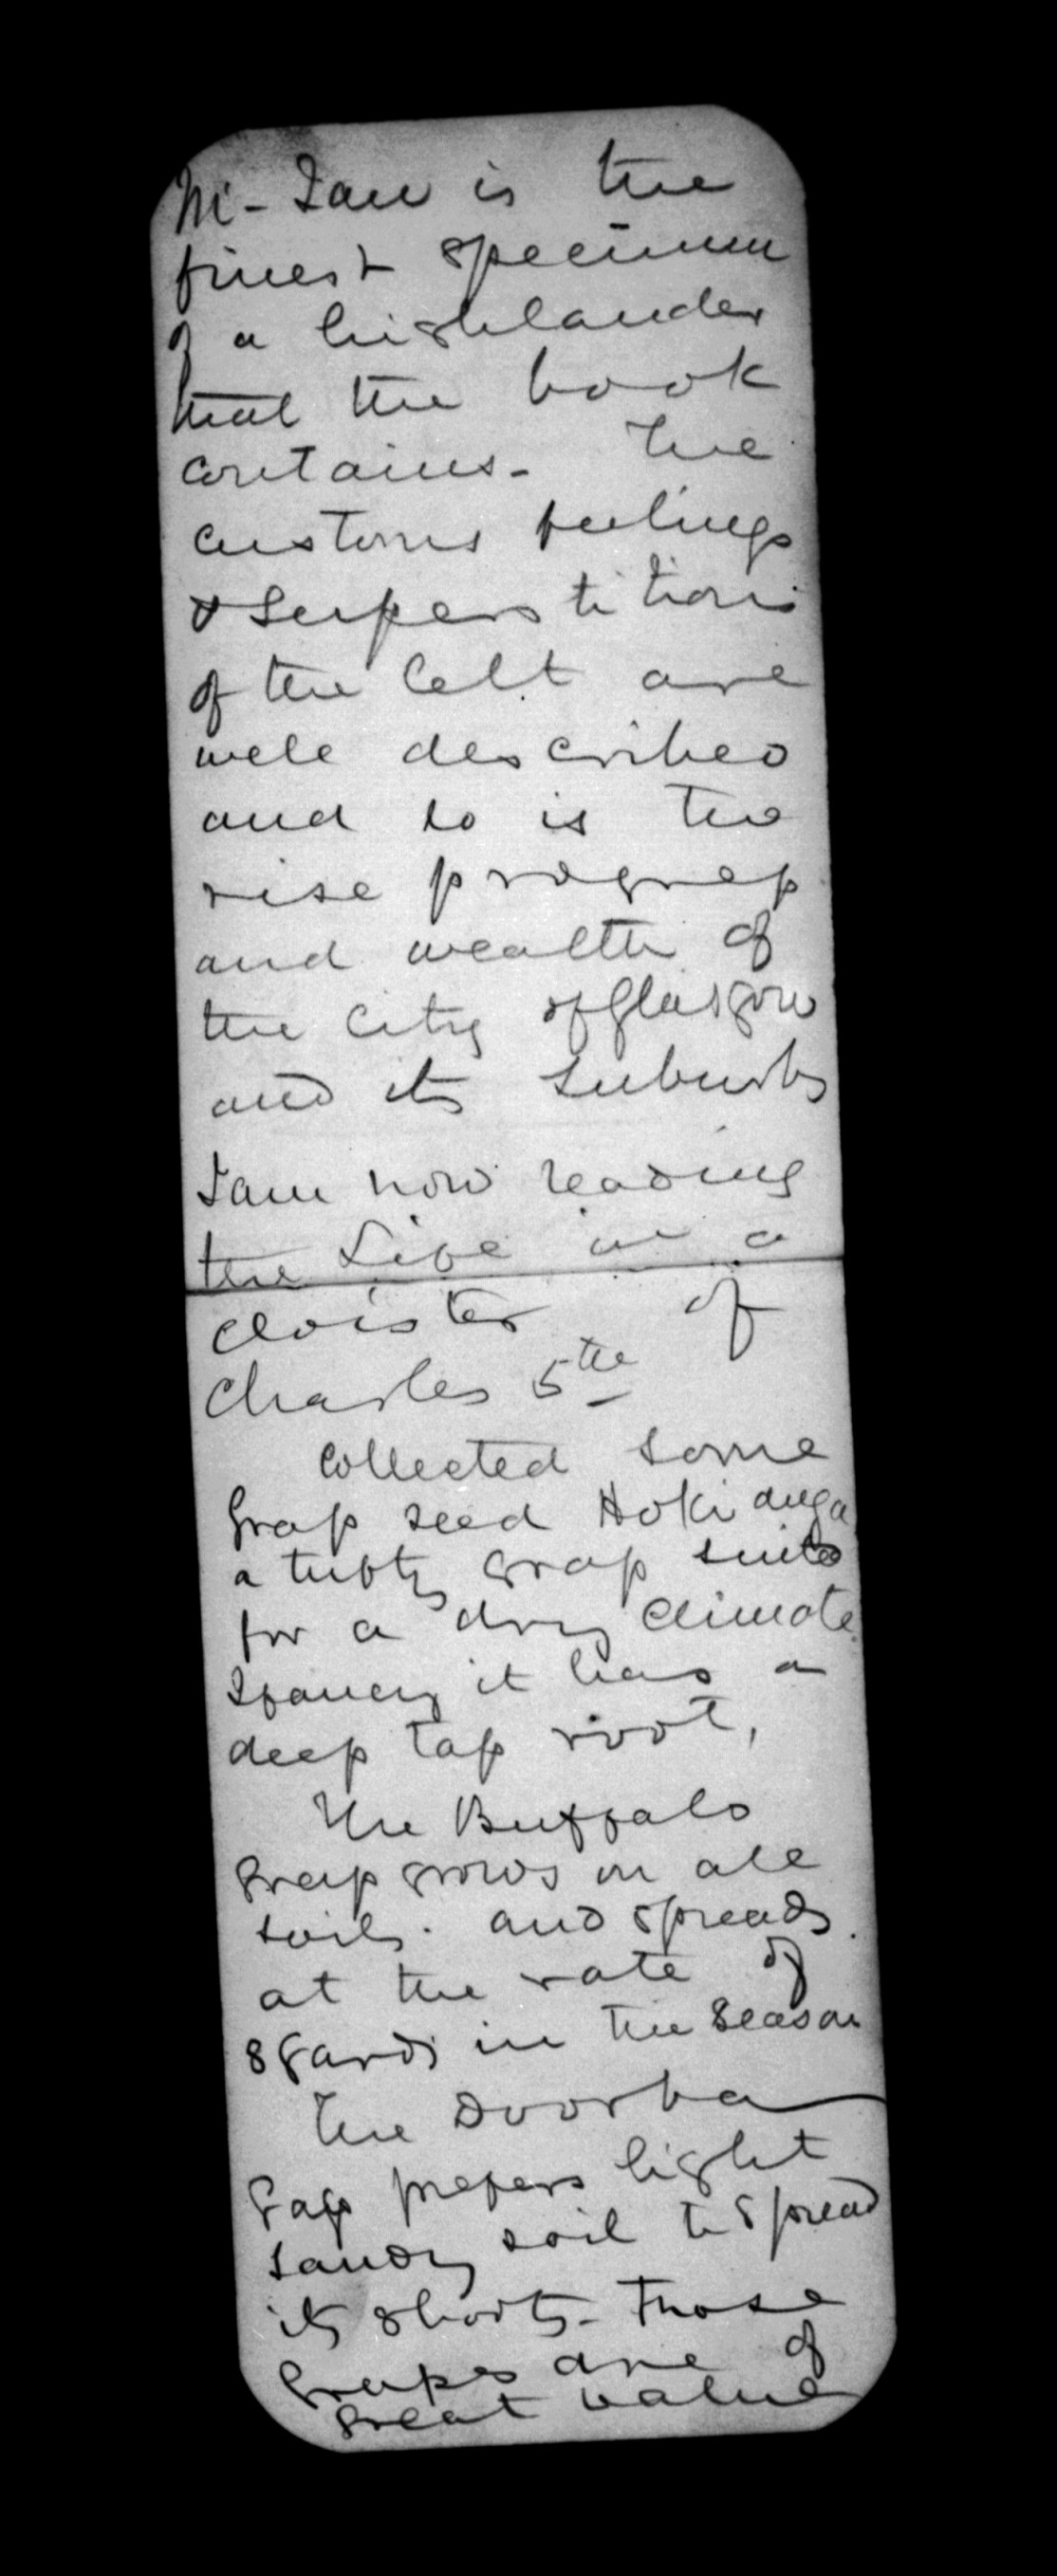 M-Ian is the
finest specimen
of a highlander
that the book
contains. The
customs feelings
& Superstitions
of the Celt are
well described
and so is the
rise progress
and wealth of
the City of Glasgow
and its suburbs
I am now reading
the Life in a
cloister of
Charles 5the
Collected some
Grass seed
a tufty grass suited
for a dry climate.
I fancy it has a
deep tap root,
The Buffalo
Grass grows on all
soils. and spreads
at the rate of
8 yards in the season
The Doorba
Gass prefers light
sandy soil to spread
its shoots. Those
Grasses are of
great value